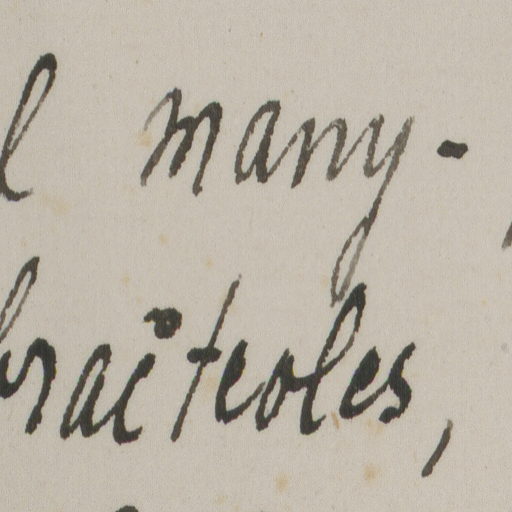 l many-
bracteoles,